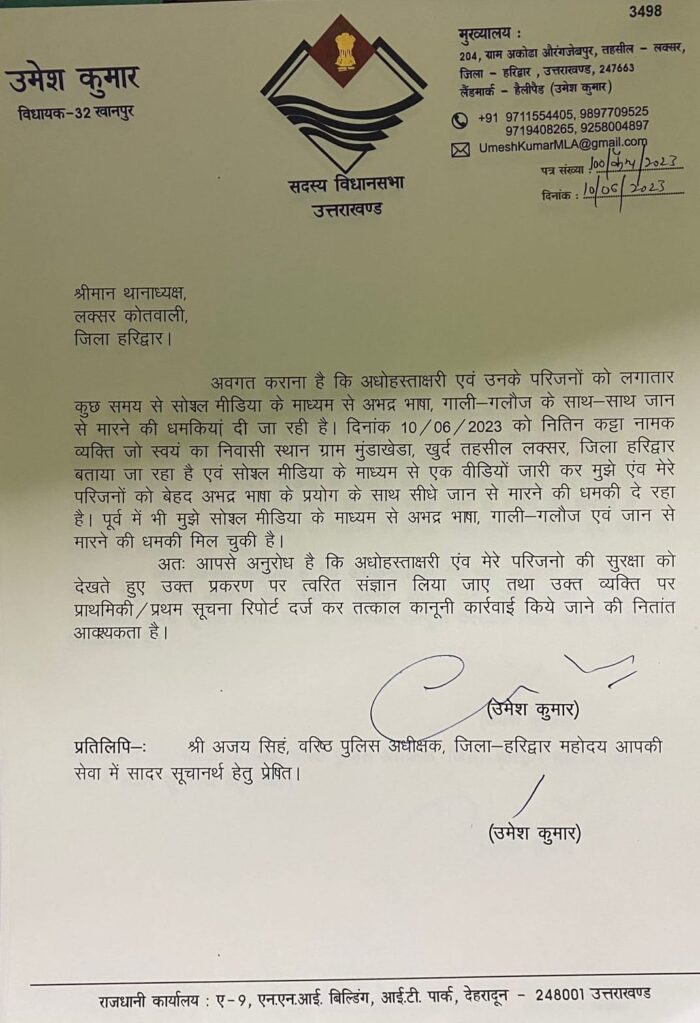 3498
उमेश कुमार
विधायक-32 खानपुर
सदस्य विधानसभा
उत्तराखण्ड
मुख्यालय :
204, ग्राम अकोढा औरंगजेबपुर, तहसील – लक्सर,
जिला – हरिद्वार , उत्तराखण्ड, 247663
लैंडमार्क – हैलीपैड (उमेश कुमार)
+91 9711554405, 9897709525
9719408265, 9258004897
UmeshKumarMLA@gmail.com
पत्र संख्या : 100/कैम्प/2023
दिनांक : 10/06/2023
श्रीमान थानाध्यक्ष,
लक्सर कोतवाली,
जिला हरिद्वार।
अवगत कराना है कि अधोहस्ताक्षरी एवं उनके परिजनों को लगातार
कुछ समय से सोश्ल मीडिया के माध्यम से अभद्र भाषा, गाली–गलौज के साथ–साथ जान
से मारने की धमकियां दी जा रही है। दिनांक 10/06/2023 को नितिन कट्टा नामक
व्यक्ति जो स्वयं का निवासी स्थान ग्राम मुंडाखेडा, खुर्द तहसील लक्सर, जिला हरिद्वार
बताया जा रहा है एवं सोश्ल मीडिया के माध्यम से एक वीडियों जारी कर मुझे एंव मेरे
परिजनों को बेहद अभद्र भाषा के प्रयोग के साथ सीधे जान से मारने की धमकी दे रहा
है। पूर्व में भी मुझे सोश्ल मीडिया के माध्यम से अभद्र भाषा, गाली–गलौज एवं जान से
मारने की धमकी मिल चुकी है।
अतः आपसे अनुरोध है कि अधोहस्ताक्षरी एंव मेरे परिजनो की सुरक्षा को
देखते हुए उक्त प्रकरण पर त्वरित संज्ञान लिया जाए तथा उक्त व्यक्ति पर
प्राथमिकी/प्रथम सूचना रिपोर्ट दर्ज कर तत्काल कानूनी कार्रवाई किये जाने की नितांत
आवश्यकता है।
(उमेश कुमार)
प्रतिलिपि–: श्री अजय सिहं, वरिष्ठ पुलिस अधीक्षक, जिला–हरिद्वार महोदय आपकी
सेवा में सादर सूचानर्थ हेतु प्रेषित।
(उमेश कुमार)
राजधानी कार्यालय : ए-9, एन.एन.आई. बिल्डिंग, आई.टी. पार्क, देहरादून – 248001 उत्तराखण्ड